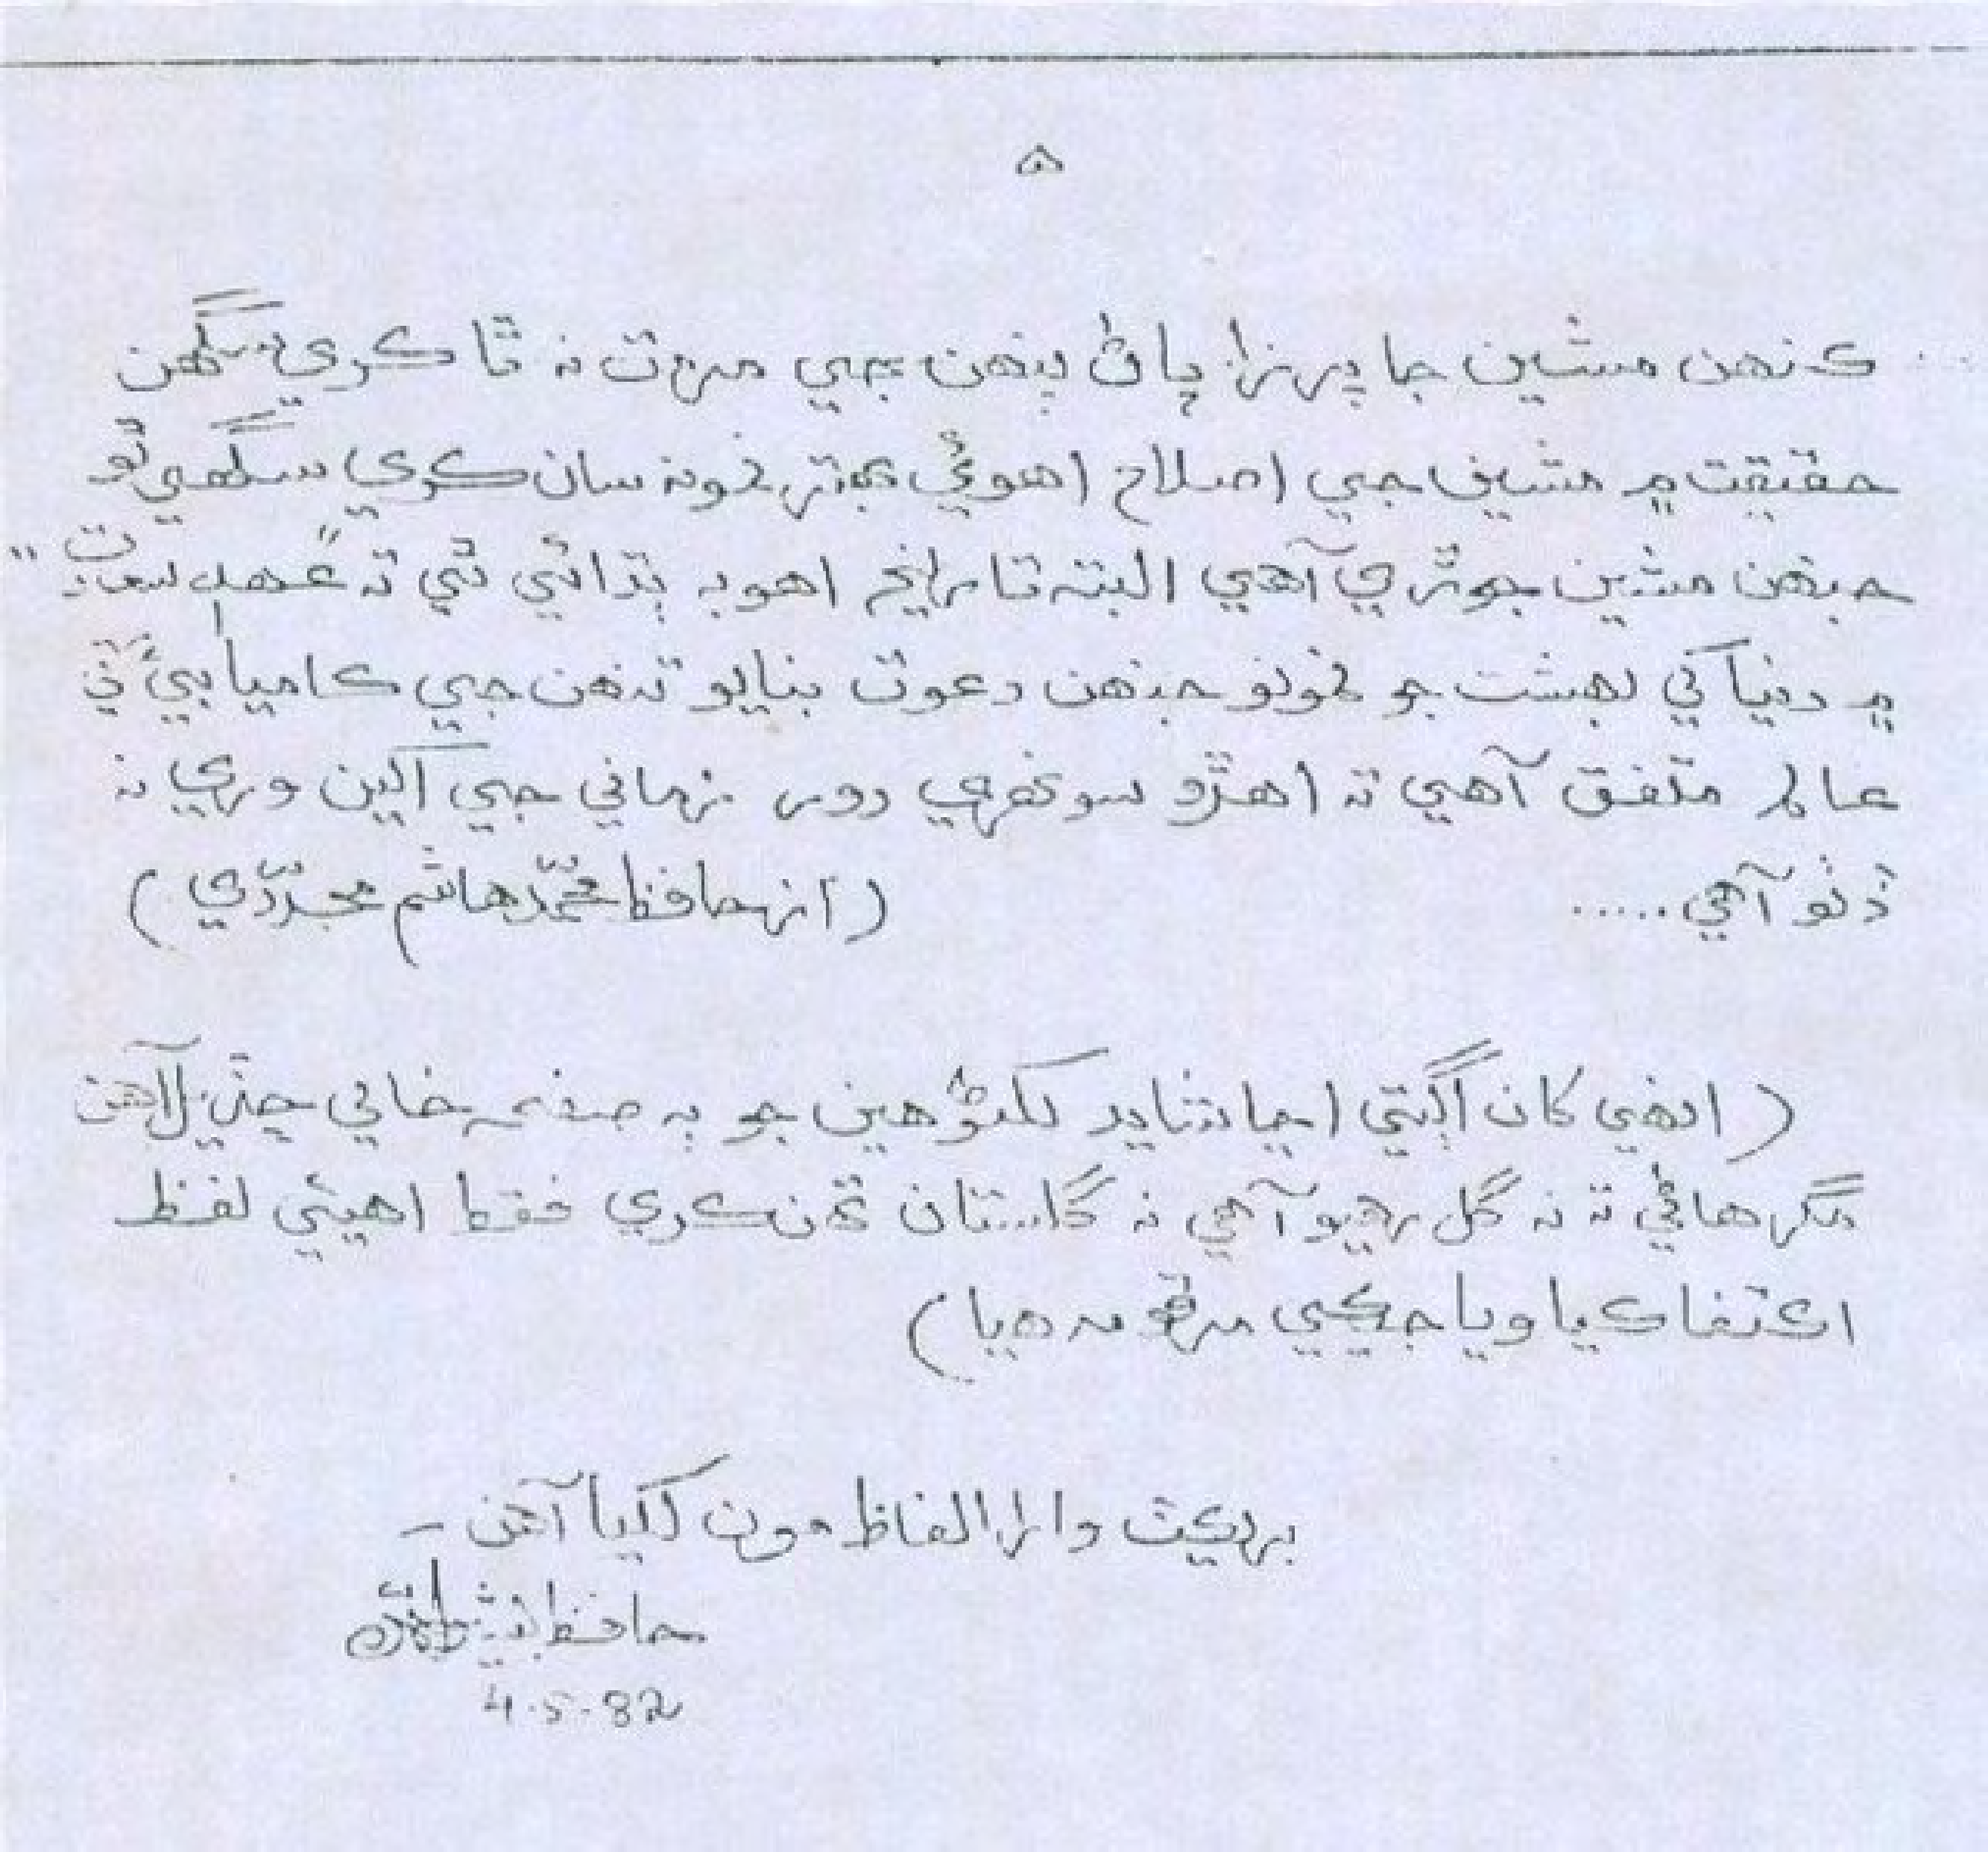 ۵
ڪنهن مشين جا پرزا پاڻ پنهن جي مرمت نه ٿا ڪري سگهن
حقيقت ۾ مشين جي اصلاح اهوئي بهتر نموني سان ڪري سگهي ٿو
جنهن مشين جوڙي آهي البته تاريخ اهو به ٻڌائي ٿي ته "عهد سعادت"
۾ دنيا کي بهشت جو نمونو جنهن دعوت بنايو تنهن جي ڪاميابي تي
عالم متفق آهي ته اهڙو سونهري دور زماني جي اکين وري نه
ڏٺو آهي .....
(از حافظ محمّد هاشم مجدّدي)
(انهي کان اڳتي اڃا شايد لکڻو هين جو ٻه صفحه خالي ڇڏيل آهن
مگر هاڻي ته نه گل رهيو آهي نه گلستان تهن ڪري فقط اهيئي لفظ
اڪتفا ڪيا ويا جيڪي مرقوم هيا)
بريڪيٽ وارا الفاظ مون لکيا آهن ـ
حافظ
4.5.82